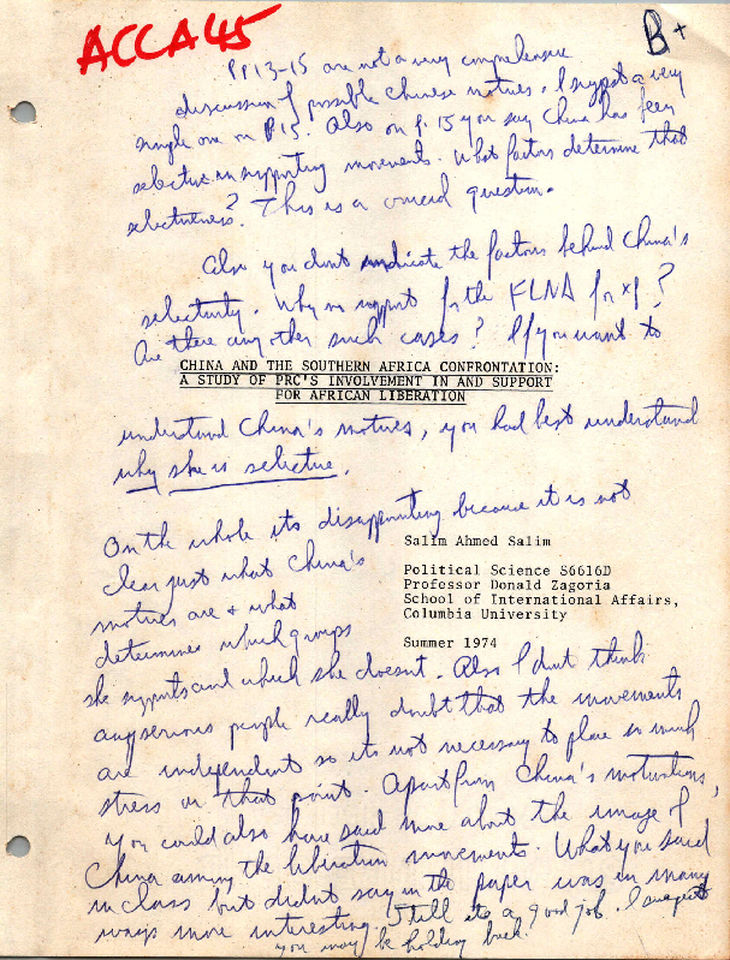 ACCA45
B+
Pp 13-15 are not a very comprehensive
discussion of possible Chinese motives. I suggest a very
simple one on p 15. Also on p. 15 you say China has been
selective in supporting movements. What factors determine that
selectiveness? This is a crucial question.
Also you dont indicate the factors behind China's
selectivity. Why no support for the FLNA for
Are there any other such cases? If you want to
CHINA AND THE SOUTHERN AFRICA CONFRONTATION:
A STUDY OF PRC'S INVOLVEMENT IN AND SUPPORT
FOR AFRICAN LIBERATION
understand China's motives, you had best understand
why she is selective.
On the whole its disappointing because it is not
Salim Ahmed Salim
clear just what China's
Political Science S6616D
Professor Donald Zagoria
School of International Affairs,
Columbia University
motives are & what
determines which groups
Summer 1974
she supports and which she doesnt. Also I dont think
any serious people really doubt that the movements
are independent so its not necessary to place so much
stress on that point. Apart from China's motivations,
you could also have said more about the image of
China among the liberation movements. What you said
in class but didnt say in the paper was in many
ways more interesting. Still its a good job. I suspect
you may be holding back.